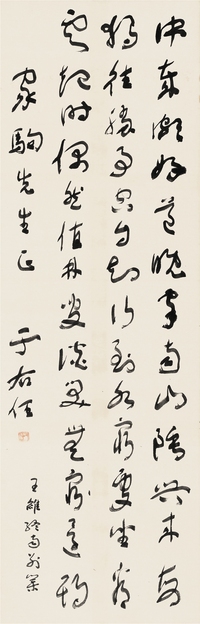 中年頗好道晚家南山陲興來每
獨往勝事空自知行到水窮處坐看
雲起時偶然值林叟談笑無還期
家駒先生正 于右任
王維終南別業